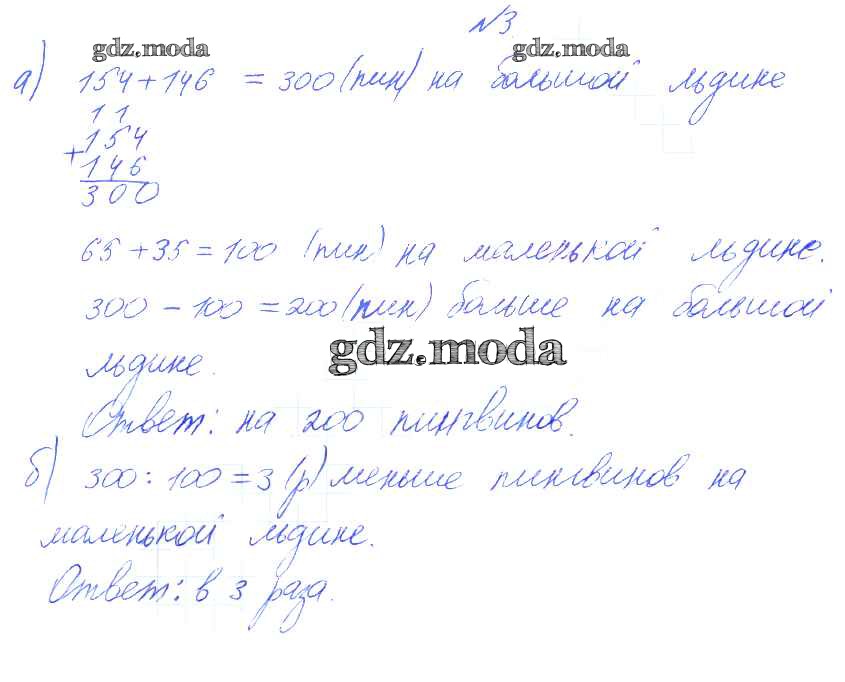 №3.
gdz.moda gdz.moda
а) 154+146 = 300 (пин) на большой льдине
11
154
+146
300
65+35=100 (пин) на маленькой льдине.
300-100=200 (пин) больше на большой
льдине.
gdz.moda
Ответ: на 200 пингвинов.
б) 300:100=3 (р) меньше пингвинов на
маленькой льдине.
Ответ: в 3 раза.